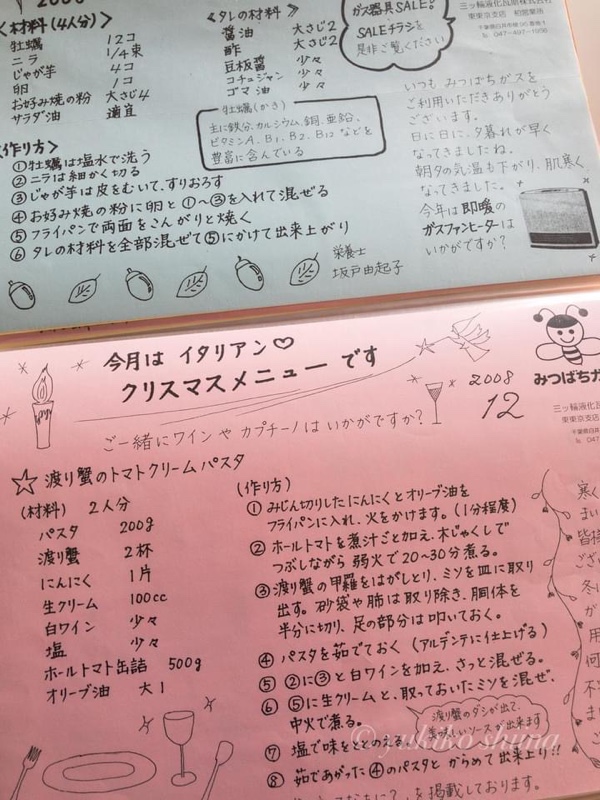 2008
<材料(4人分)>
牡蠣 12コ
ニラ 1/4束
じゃが芋 4コ
卵 1コ
お好み焼の粉 大さじ4
サラダ油 適宜
<タレの材料>
醤油 大さじ2
酢 大さじ2
豆板醤 少々
コチュジャン 少々
ゴマ油 少々
ガス器具SALE!
SALEチラシを
是非ご覧ください
東東京支店
047-497-1956
牡蠣(かき)
主に鉄分、カルシウム、銅、亜鉛、
ビタミンA、B1、B2、B12などを
豊富に含んでいる
いつも、みつばちガスを
ご利用いただきありがとう
ございます。
日に日に、夕暮れが早く
なってきましたね。
朝夕の気温も下がり、肌寒く
なってきました。
今年は即暖の
ガスファンヒーターは
いかがですか?
<作り方>
①牡蠣は塩水で洗う
②ニラは細かく切る
③じゃが芋は皮をむいて、すりおろす
④お好み焼の粉に卵と①~③を入れて混ぜる
⑤フライパンで両面をこんがりと焼く
⑥タレの材料を全部混ぜて⑤にかけて出来上がり
栄養士
坂戸由起子
今月は イタリアン♡
クリスマスメニューです
2008
12
ご一緒にワインやカプチーノはいかがですか?
みつばちガ
三ッ輪液化瓦
東東京支店
☆渡り蟹のトマトクリームパスタ
(材料) 2人分
パスタ 200g
渡り蟹 2杯
にんにく 1片
生クリーム 100cc
白ワイン 少々
塩 少々
ホールトマト缶詰 500g
オリーブ油 大1
(作り方)
① みじん切りしたにんにくとオリーブ油を
フライパンに入れ、火をかけます。(1分程度)
② ホールトマトを煮汁ごと加え、木じゃくしで
つぶしながら 弱火で20~30分煮る。
③ 渡り蟹の甲羅をはがしとり、ミソを皿に取り
出す。砂袋や肺は取り除き、胴体を
半分に切り、足の部分は叩いておく。
④ パスタを茹でておく (アルデンテに仕上げる)
⑤ ②に③と白ワインを加え、さっと混ぜる。
⑥ ⑤に生クリームと、取っておいたミソを混ぜ、
中火で煮る。
渡り蟹のダシが出て、
美味しいソースが出来ます
⑦ 塩で味をととのえる
⑧ 茹であがった④のパスタと からめて出来上り!!
を掲載しております。
寒く
まい
皆様
© yukiko shima